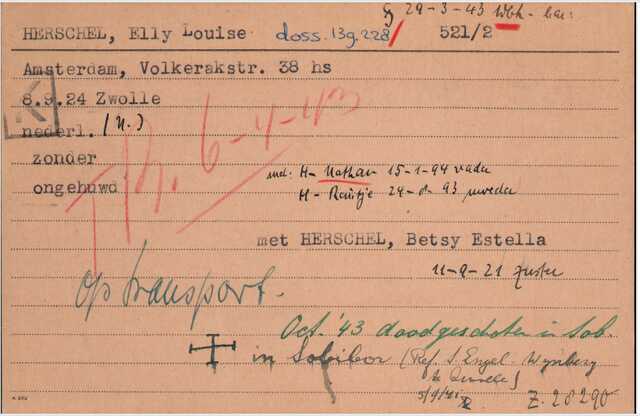 29-3-43 Wbk. bar:
HERSCHEL, Elly Louise doss. 13g.228/ 521/2
Amsterdam, Volkerakstr. 38 hs
8.9.24 Zwolle
K
nederl. (N.)
6-4-43
zonder
ongehuwd
met: H- Nathan 15-1-94 vader
H- 93 moeder
met HERSCHEL, Betsy Estella
11-9-21 zuster
op transport.
Oct. '43 doodgeschoten in Sob.
in Sobibor (Ref. S. Engel-Wijnberg
Zwolle)
Z. 28290